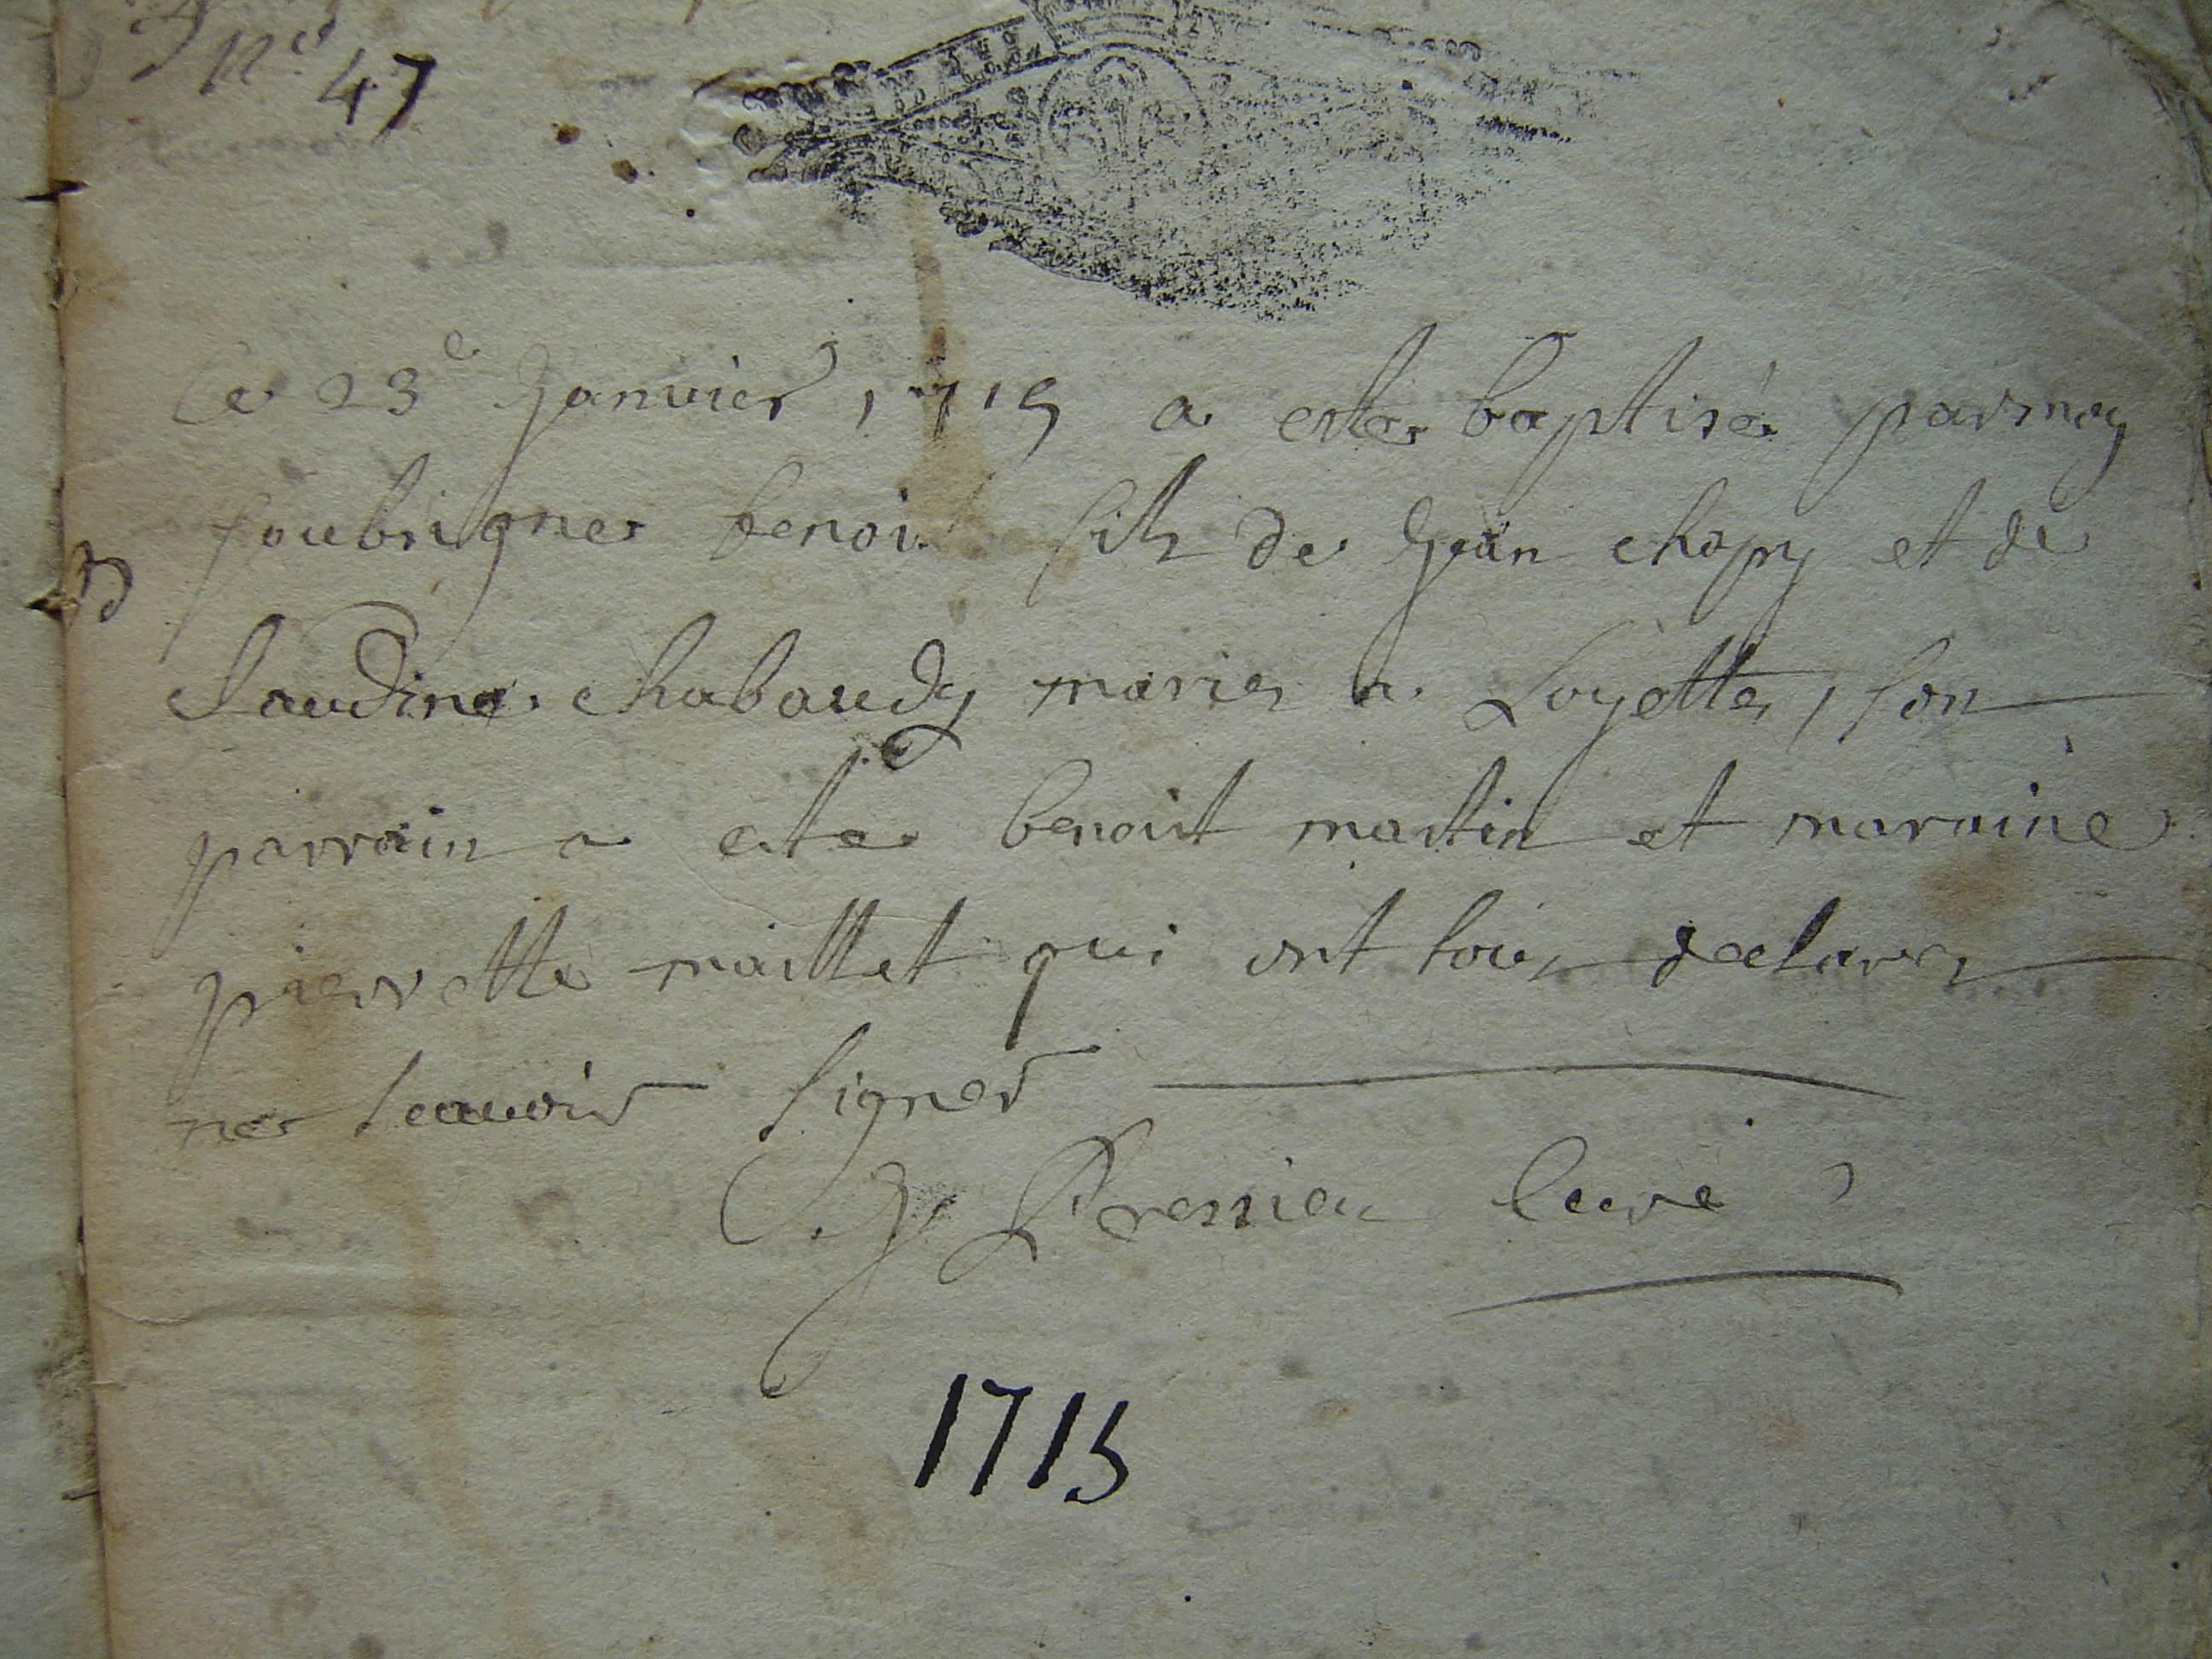 nº 47
Ce 23e Janvier 1715 a este baptisé parmoy
soubsigne benoit fils de Jean chapy et de
Claudine chabaudy maries a Loyettes, son
parrain a este benoist martin et maraine
pierrette maillet qui ont tous declares
ne scavoir signer
J. Pressieu Curé
1715
B